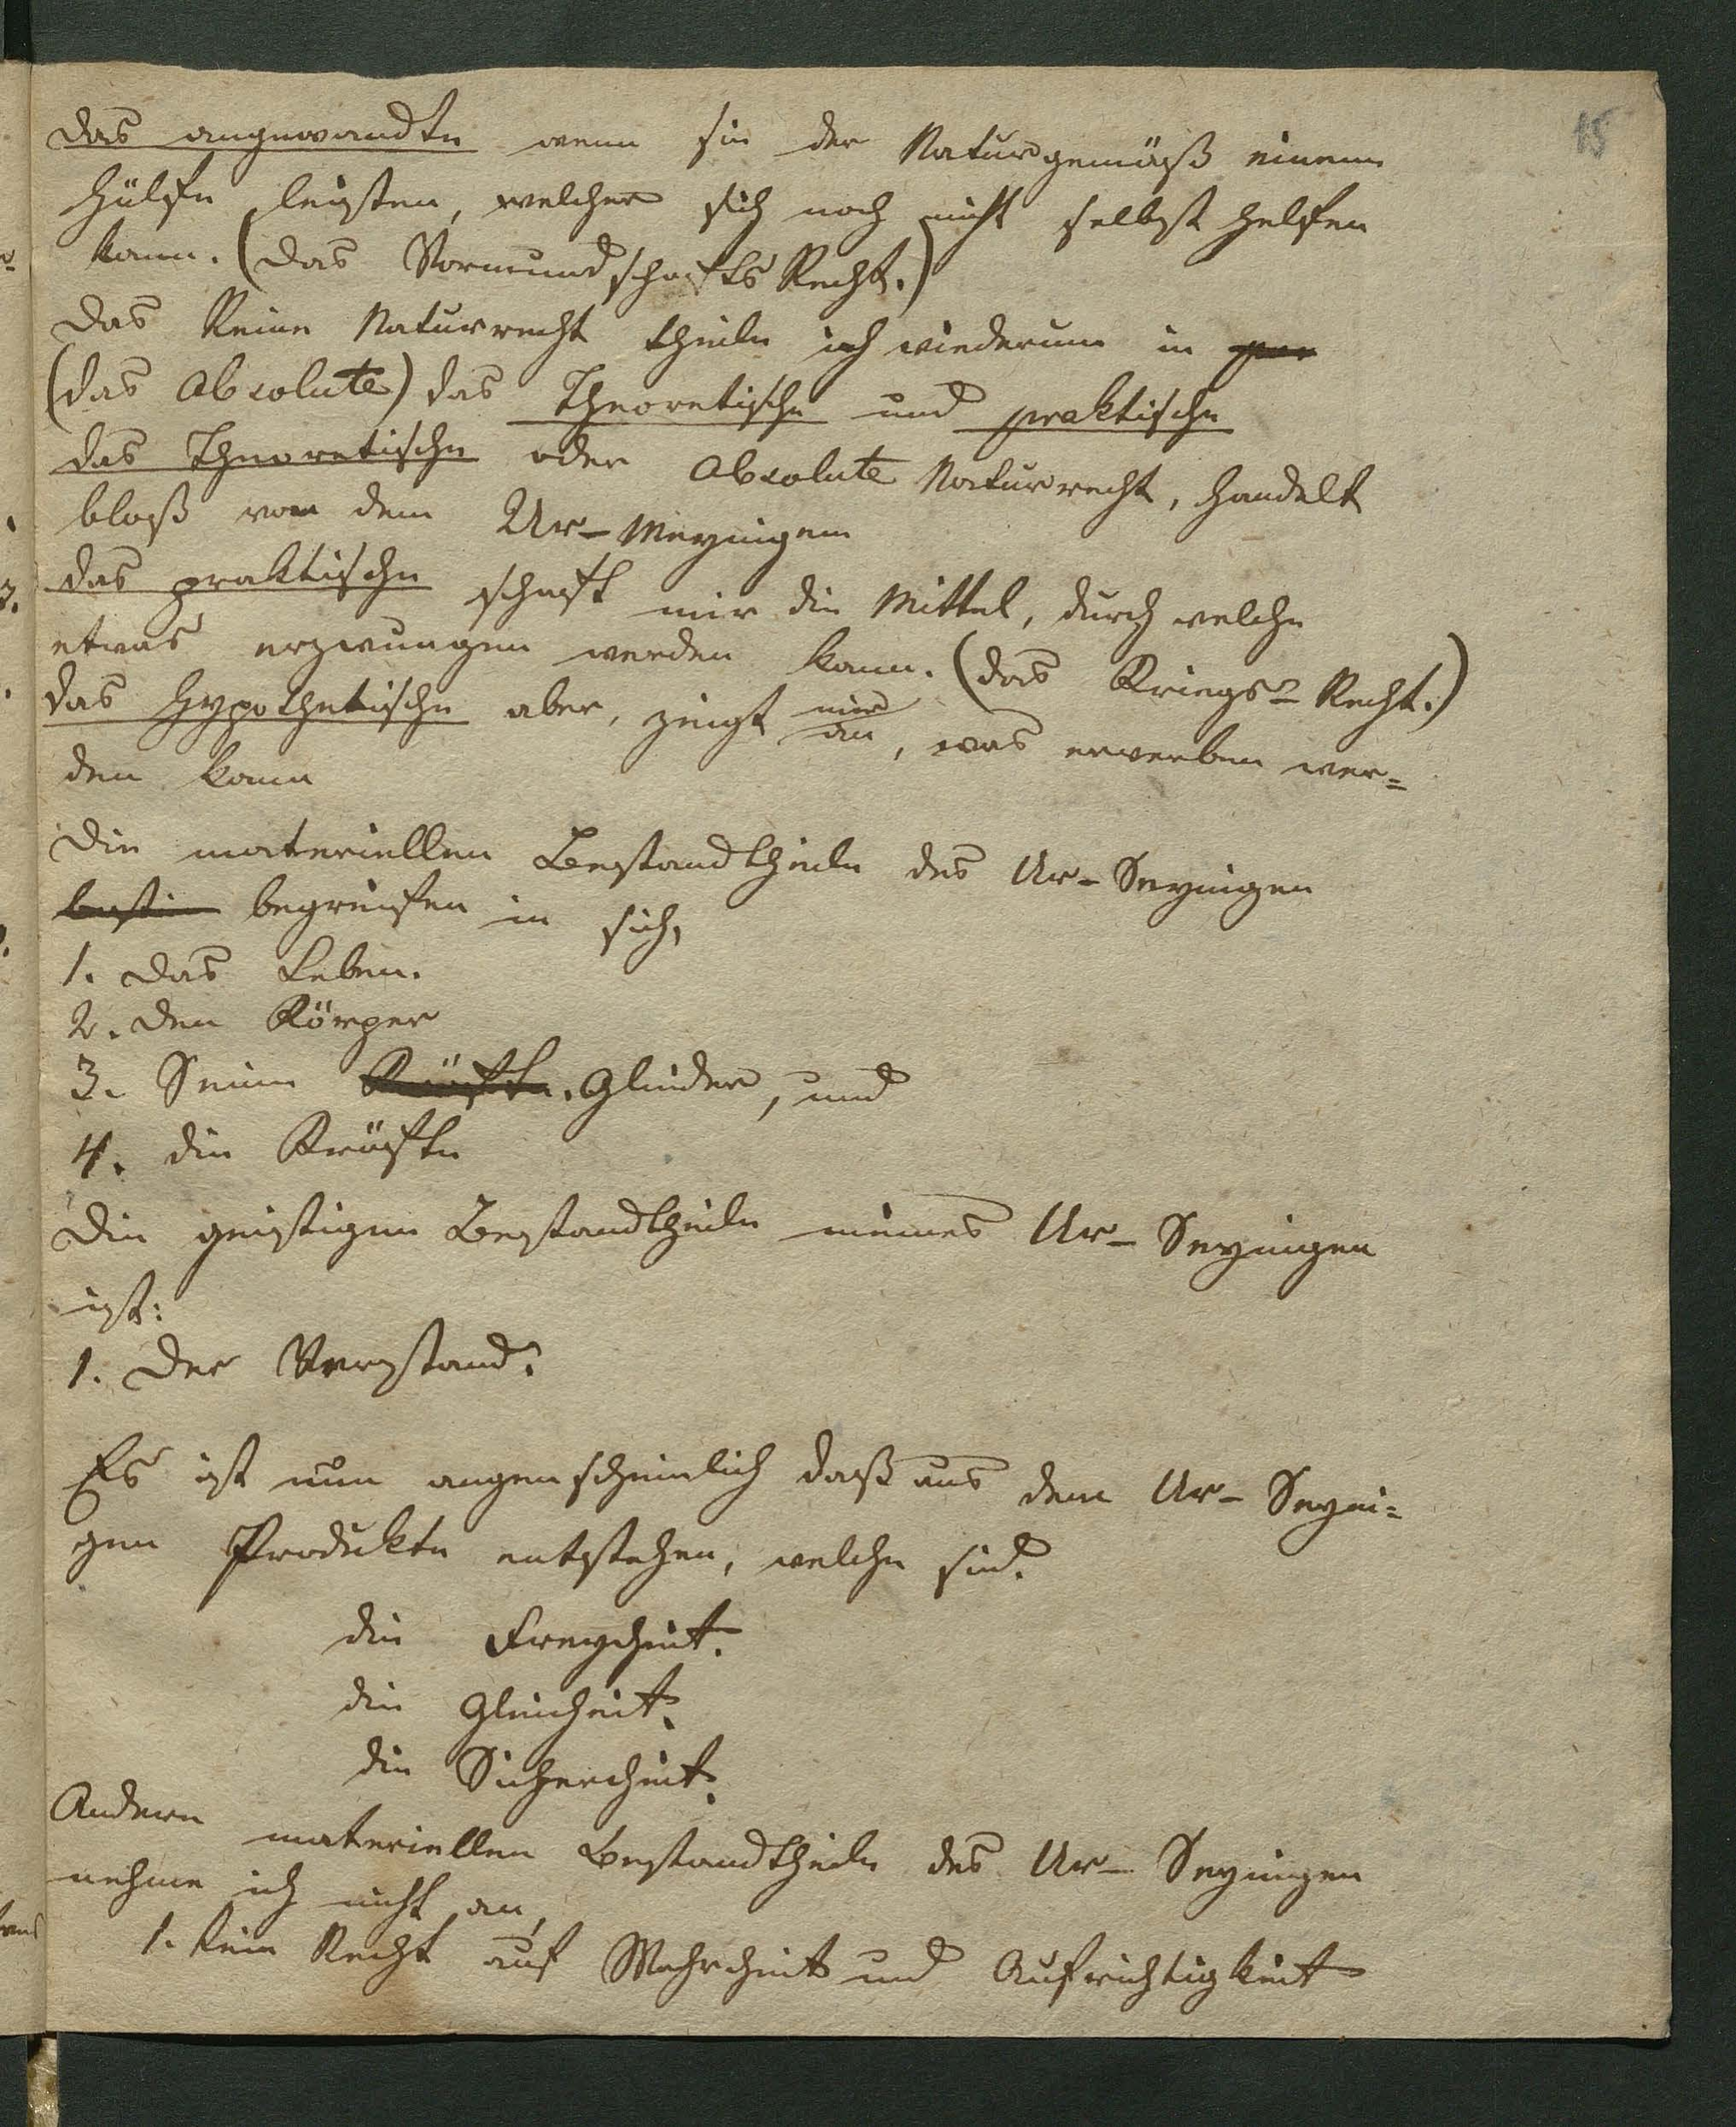 15
das angewandte wenn sie der Natur gemäß einem
Hülfe leisten, welcher sich noch nicht selbst helfen
kann. (das Vormundschafts Recht.)
Das Reine Naturrecht theile ich wiederum in
(das Absolute) das Theoretische und praktische
das Theoretische oder Absolute Naturrecht, handelt
bloß von dem Ur-Meynigem
das praktische schaft mir die Mittel, durch welche
etwas erzwungen werden kann. (das Kriegs-Recht.)
das Hypothetische aber, zeigt mir an, was erwerben wer=
den kann
Die materiellen Bestandtheile des Ur-Seynigen
begreifen in sich,
1. das Leben.
2. den Körper
3. Seine Kräfte. Glieder, und
4. die Kräfte
Die geistigen Bestandtheile meines Ur-Seynigen
ist:
1. der Verstand.
Es ist nun augenscheinlich daß aus dem Ur-Seyni=
gen Produkte entstehen, welche sind.
die Freyheit.
die Gleicheit.
die Sicherheit.
Andere materiellen Bestandtheile des Ur-Seynigen
nehme ich nicht an,
1. kein Recht auf Wahrheit und Aufrichtigkeit